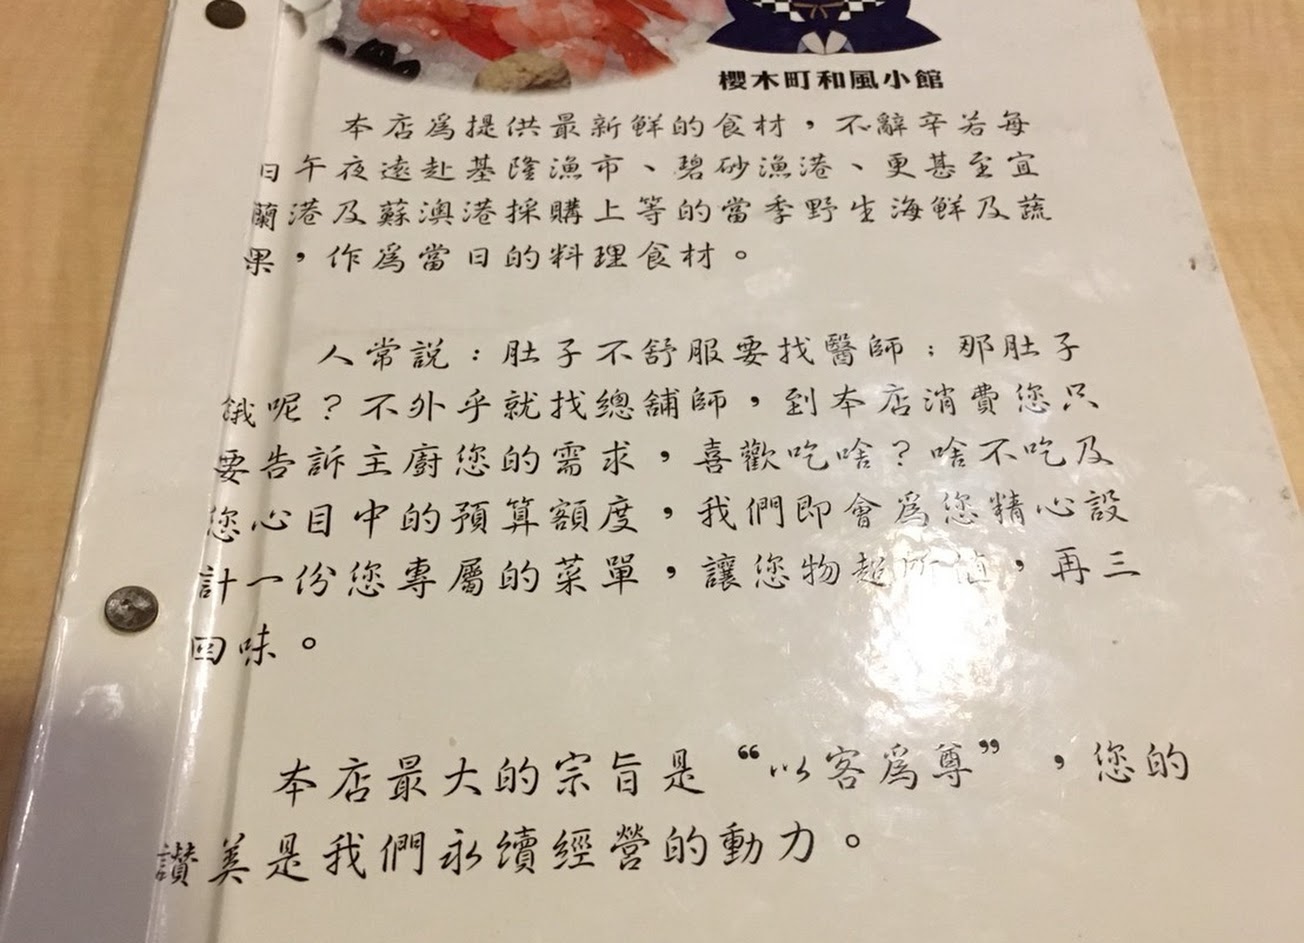 櫻木町和風小館
本店為提供最新鮮的食材，不辭辛若每
日午夜遠赴基隆漁市、碧砂漁港、更甚至宜
蘭港及蘇澳港採購上等的當季野生海鮮及蔬
果，作為當日的料理食材。
人常說：肚子不舒服要找醫師；那肚子
餓呢？不外乎就找總舖師，到本店消費您只
要告訴主廚您的需求，喜歡吃啥？啥不吃及
您心目中的預算額度，我們即會為您精心設
計一份您專屬的菜單，讓您物超所值，再三
回味。
本店最大的宗旨是“以客為尊”，您的
讚美是我們永續經營的動力。